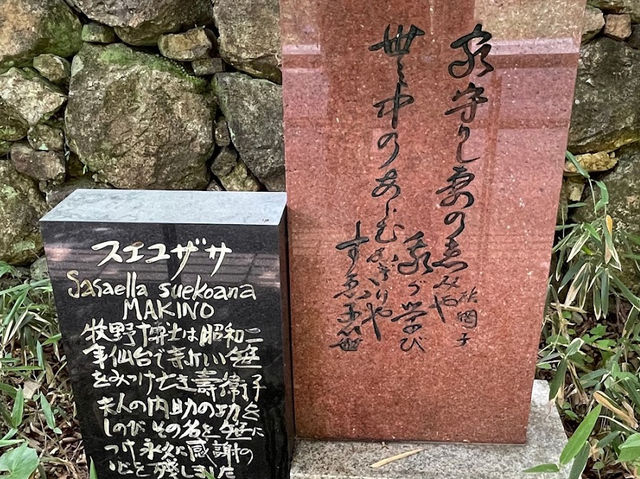 スエコザサ
Sasaella suekoana
MAKINO
牧野博士は昭和二
年仙台で珍しい笹
をみつけ亡き壽衛子
夫人の内助の功を
しのびその名を笹に
つけ永久に感謝の
心を残しました
家守りし妻の恵みや
我が学び
世の中のあらむかぎりや
すゑ子笹